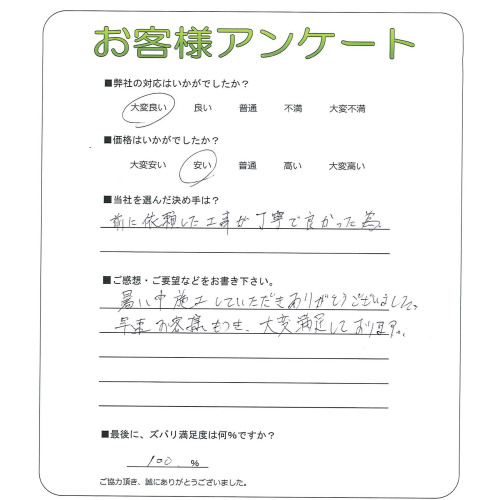 お客様アンケート
■弊社の対応はいかがでしたか?
大変良い 良い 普通 不満 大変不満
■価格はいかがでしたか?
大変安い 安い 普通 高い 大変高い
■当社を選んだ決め手は?
前に依頼した工事が丁寧で良かった為。
■ご感想・ご要望などをお書き下さい。
暑い中施工していただきありがとうございました。
早速お客様もつき、大変満足しております。
■最後に、ズバリ満足度は何%ですか?
100 %
ご協力頂き、誠にありがとうございました。